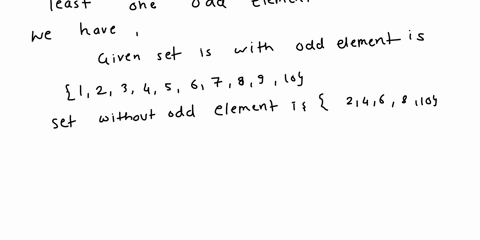 least one odd element
we have,
Given set is with odd element is
{1, 2, 3, 4, 5, 6, 7, 8, 9, 10}
set without odd element is { 2,4,6, 8,10}